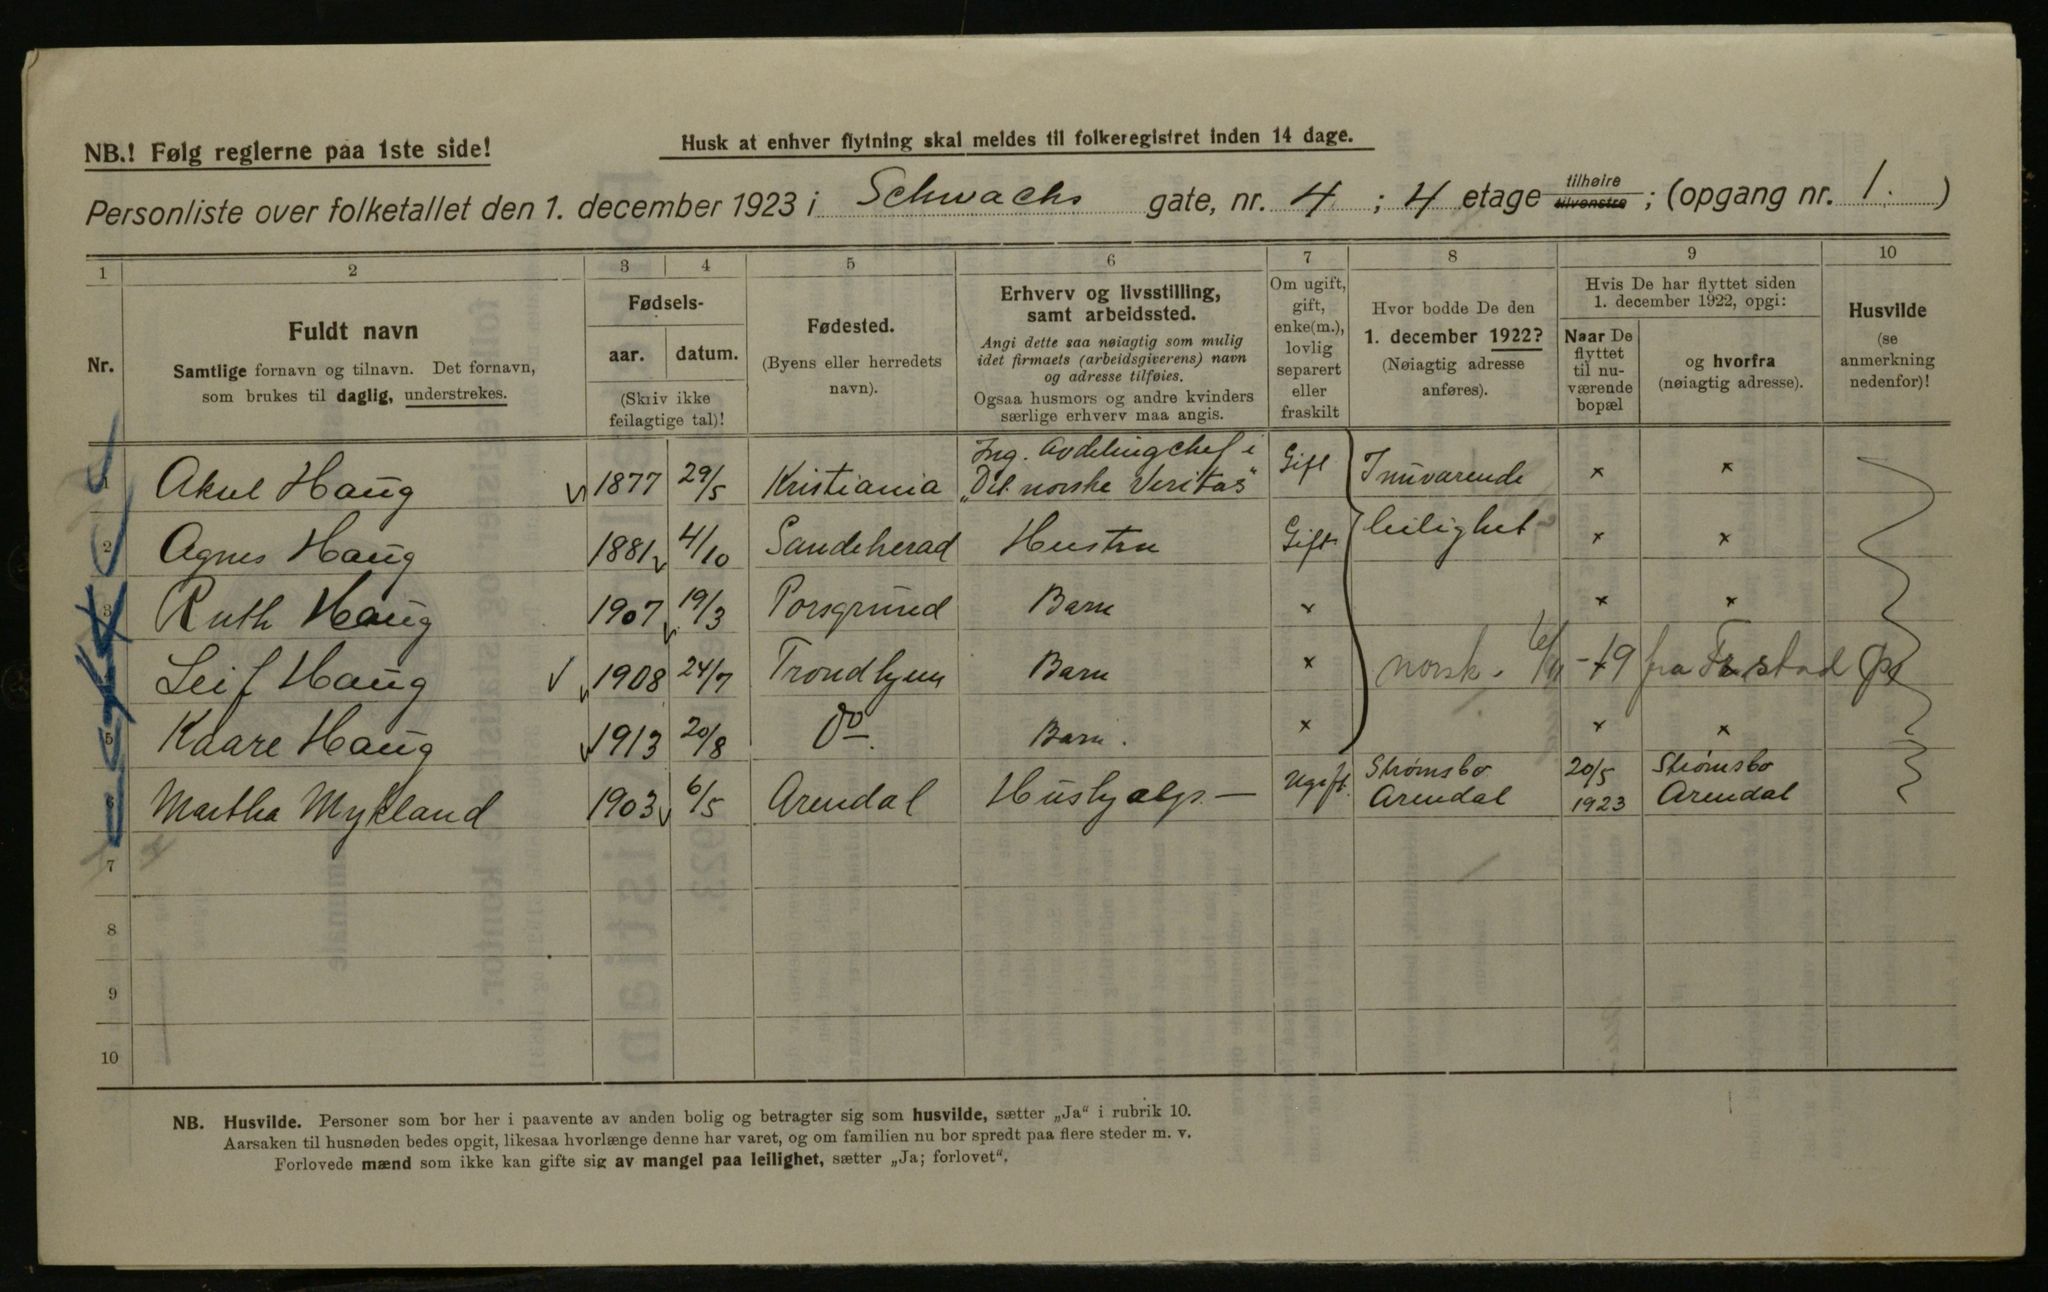 NB.! Følg reglerne paa 1ste side!
Husk at enhver flytning skal meldes til folkeregistret inden 14 dage.
Personliste over folketallet den 1. december 1923 i Schwachs gate, nr. 4; 4 etage tilhøire tilvenstre; (opgang nr. 1.)
1 2 3 4 5 6 7 8 9 10
Nr.
Fuldt navn
Samtlige fornavn og tilnavn. Det fornavn,
som brukes til daglig, understrekes.
Fødsels-
aar. datum.
(Skriv ikke
feilagtige tal)!
Fødested.
(Byens eller herredets
navn).
Erhverv og livsstilling,
samt arbeidssted.
Angi dette saa nøiagtig som mulig
idet firmaets (arbeidsgiverens) navn
og adresse tilføies.
Ogsaa husmors og andre kvinders
særlige erhverv maa angis.
Om ugift,
gift,
enke(m.),
lovlig
separert
eller
fraskilt
Hvor bodde De den
1. december 1922?
(Nøiagtig adresse
anføres).
Hvis De har flyttet siden
1. december 1922, opgi:
Naar De
flyttet
til nu-
værende
bopæl
og hvorfra
(nøiagtig adresse).
Husvilde
(se
anmerkning
nedenfor)!
1 Aksel Haug 1877 29/5 Kristiania Ing. Avdelingchef i „Det norske Veritas" Gift I nuværende × ×
2 Agnes Haug 1881 4/10 Sandeherad Hustru Gift leilighet × ×
3 Ruth Haug 1907 19/3 Porsgrund Barn × × ×
Leif Haug 1908 24/7 Trondhjem Barn × norsk. fra
5 Kaare Haug 1913 20/8 Do. Barn. × × ×
6 Martha Mykland 1903 6/5 Arendal Hushjælp. Ugift. Strømsbo Arendal 20/5 1923 Strømsbo Arendal
7
8
9
10
NB. Husvilde. Personer som bor her i paavente av anden bolig og betragter sig som husvilde, sætter „Ja" i rubrik 10.
Aarsaken til husnøden bedes opgit, likesaa hvorlænge denne har varet, og om familien nu bor spredt paa flere steder m. v.
Forlovede mænd som ikke kan gifte sig av mangel paa leilighet, sætter „Ja; forlovet".